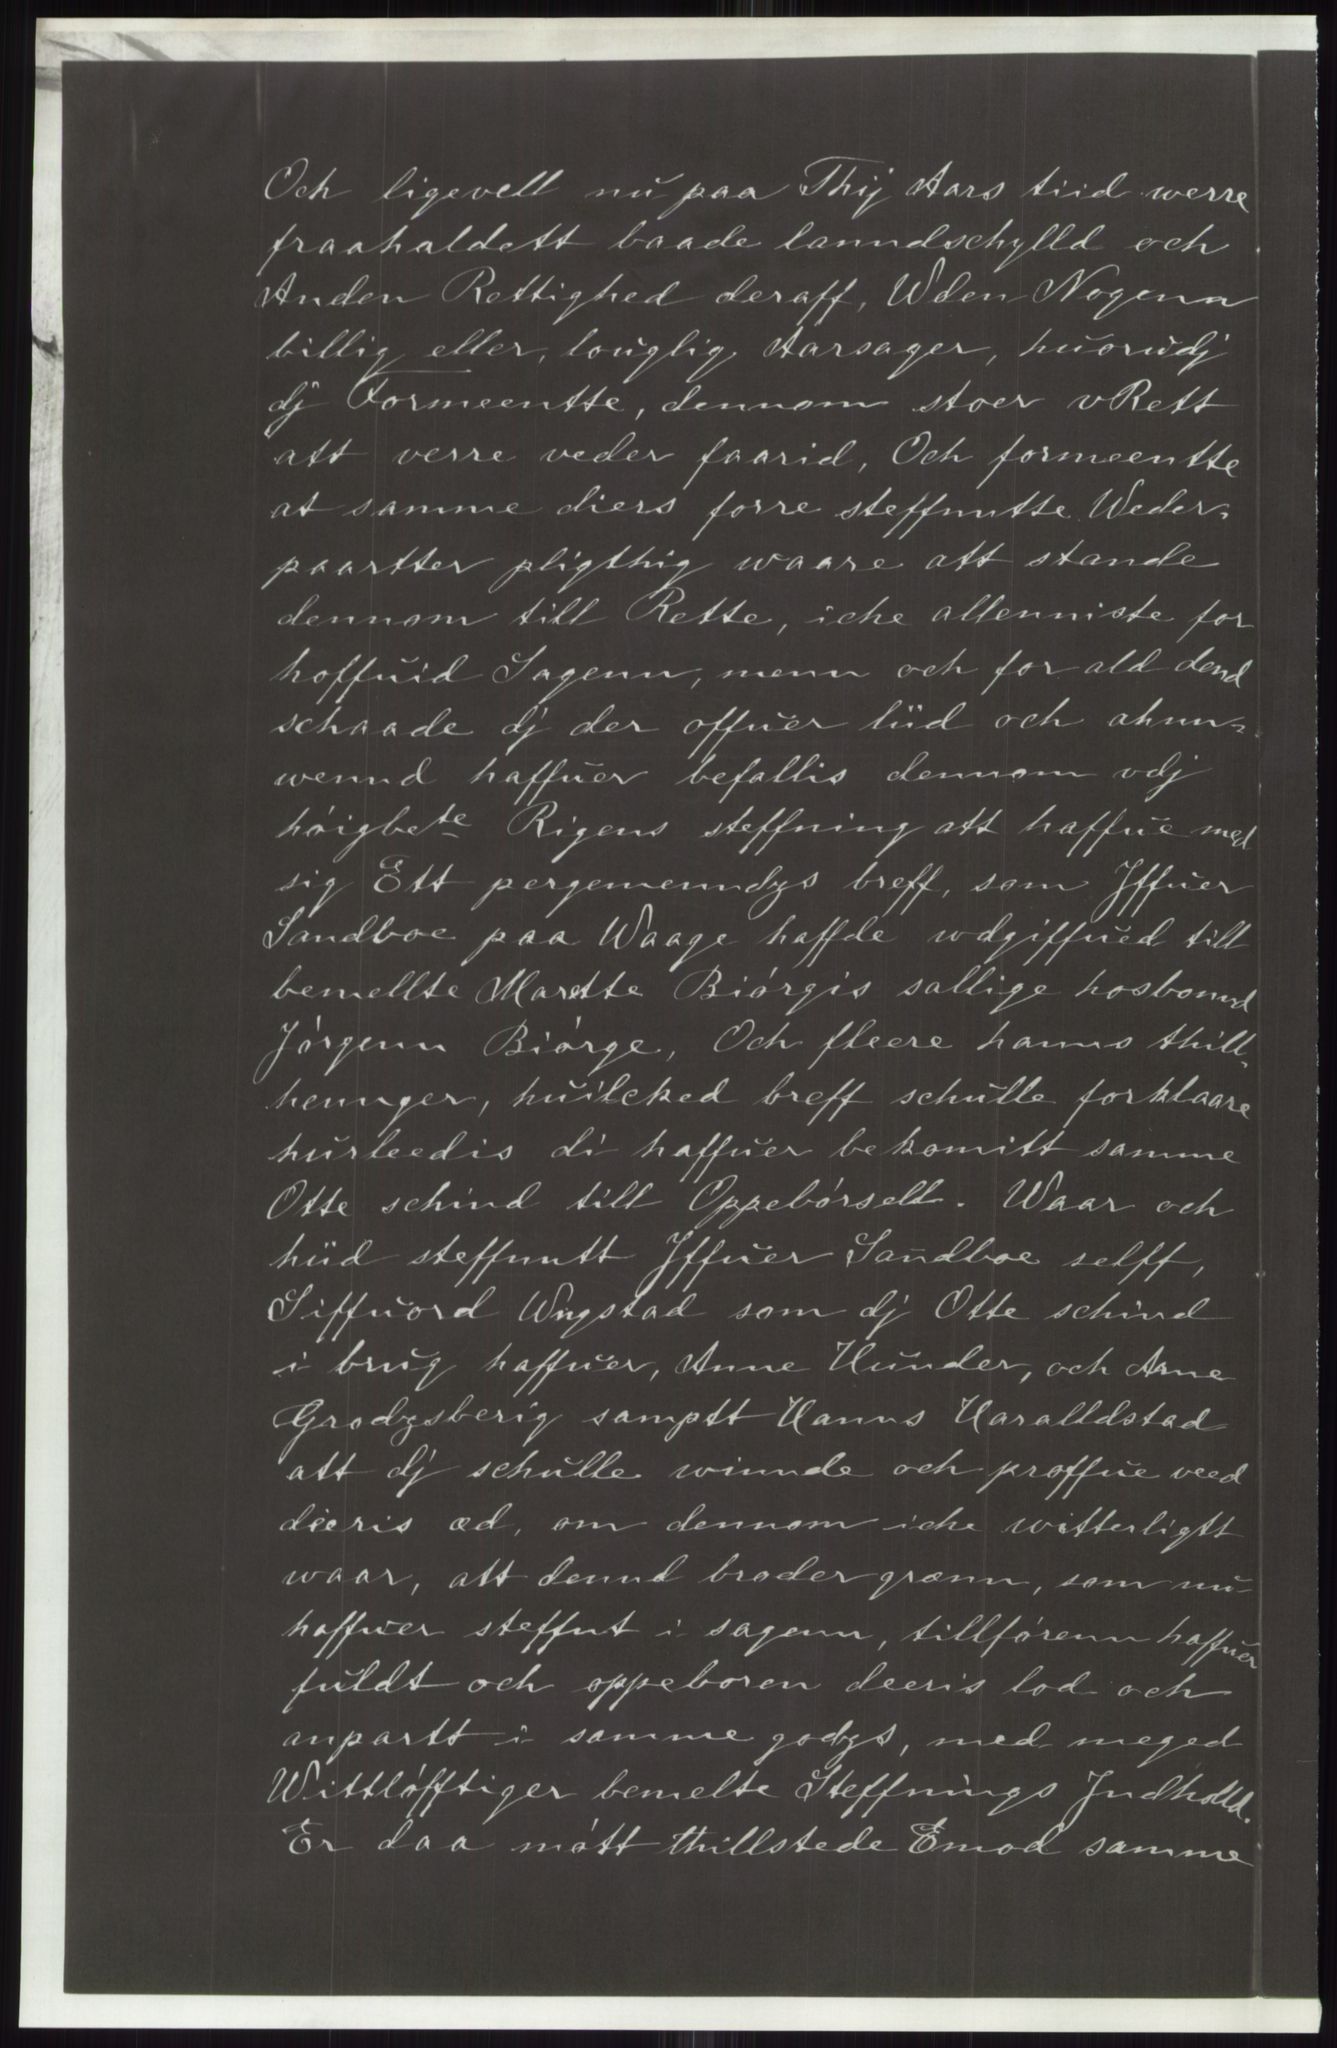 Och ligevell nu paa Thij Aars tiid werre
fraahaldett baade lanndschylld och
Anden Rettighed deraff, Wden Nogenn
billig eller, louglig Aarsager, huorudj
dj Formeentte, dennom stoer vRett
att verre veder faarid, Och formeentte
at samme diers forre steffnntte Weder,
paartter pligthig waare att stande
dennom till Rette, iche allenniste for
hoffuid Sagenn, menn och for ald dend
schaade dj der offuer liid och ahnn-
wennd haffuer befallis dennom vdj
høigbete Rigens steffning att haffue med
sig Ett pergemenndzs breff, som Jffuer
Sandboe paa Waage haffde wdgiffued till
bemellte Marette Biørgis sallige hosbonnd
Jørgenn Biørge, Och fleere hanns thill-
hennger, huilcked breff schulle forklaare
hurleedis di haffuer bekomitt samme
Otte schind till Oppebørsell. Waar och
hiid steffnntt Jffuer Sandboe selff,
Siffuord Wngstad som dj Otte schind
i brug haffuer, Anne Hunder, och Arne
Grodzsberig samptt Hanns Haralldstad
att dj schulle winnde och proffue veed
dieris æd, om dennom iche witterligtt
waar, att dennd broder grænn, som nu
haffuer steffnt i sagenn, tillførenn haffuer
fuldt och oppeboren deeris lod och
anpartt i samme godzs, med meged
Wittløfftiger bemelte Steffnings Jndholld.
Er daa møtt thillstede Emod samme